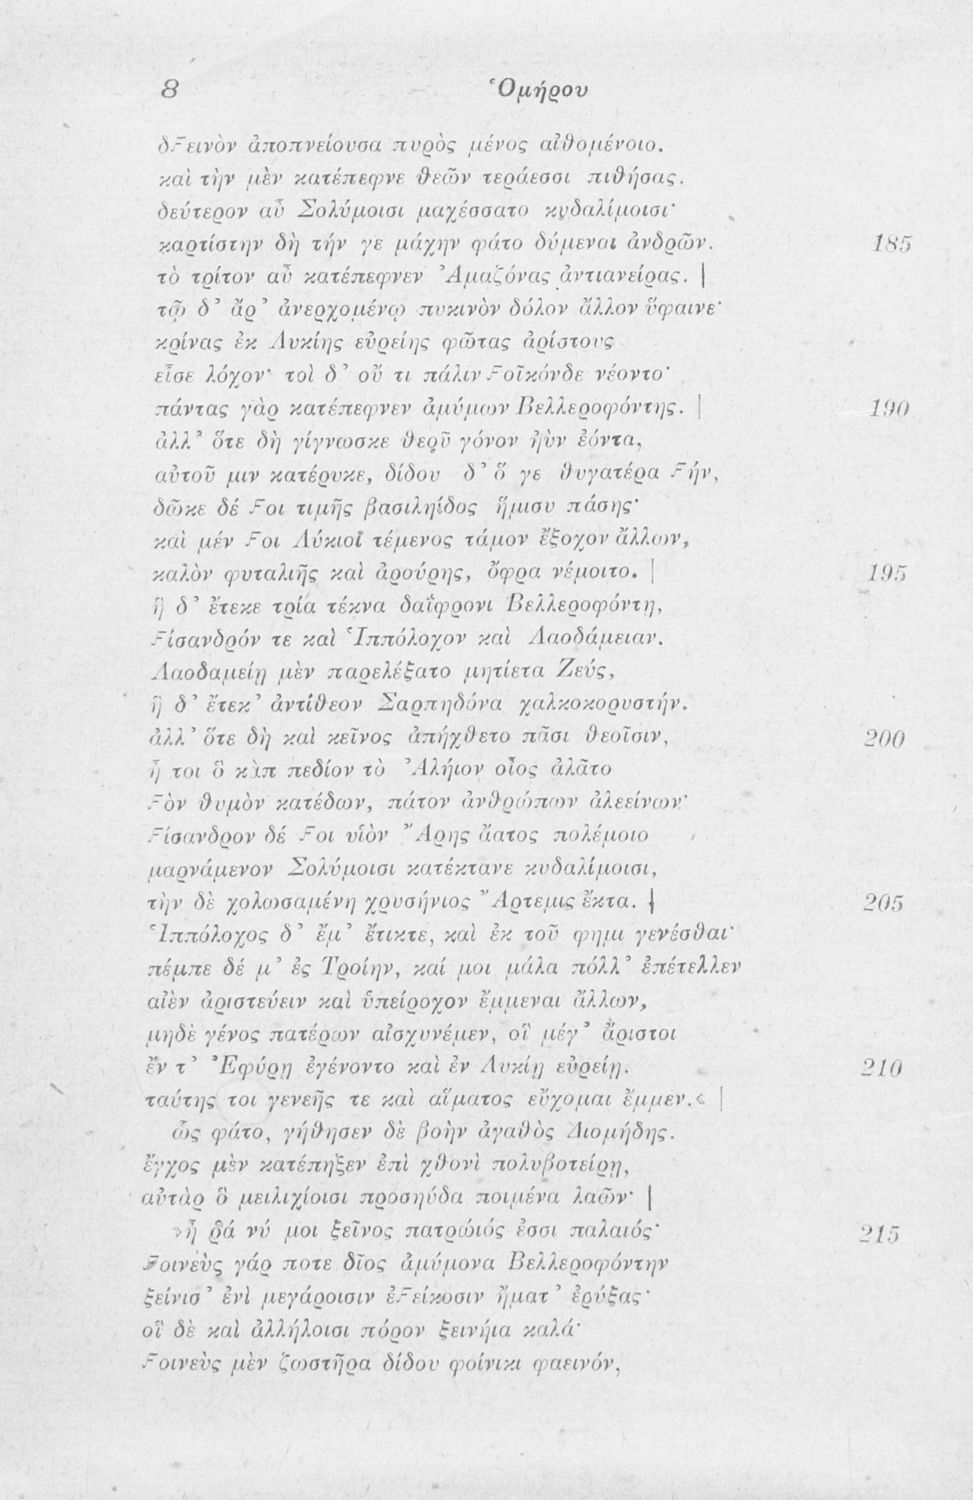 8 Ὁμήρου
δϝεινὸν ἀποπνείουσα πυρὸς μένος αἰθομένοιο.
καὶ τὴν μὲν κατέπεφνε θεῶν τεράεσσι πιθήσας.
δεύτερον αὖ Σολύμοισι μαχέσσατο κυδαλίμοισι·
καρτίστην δὴ τήν γε μάχην φάτο δύμεναι ἀνδρῶν. 185
τὸ τρίτον αὖ κατέπεφνεν Ἀμαζόνας ἀντιανείρας. |
τῷ δ’ ἄρ’ ἀνερχομένῳ πυκινὸν δόλον ἄλλον ὕφαινε·
κρίνας ἐκ Λυκίης εὐρείης φῶτας ἀρίστους
εἷσε λόχον· τοὶ δ’ οὔ τι πάλιν ϝοῖκόνδε νέοντο·
πάντας γὰρ κατέπεφνεν ἀμύμων Βελλεροφόντης. | 190
ἀλλ’ ὅτε δὴ γίγνωσκε θεοῦ γόνον ἠὺν ἐόντα,
αὐτοῦ μιν κατέρυκε, δίδου δ’ ὅ γε θυγατέρα ϝήν,
δῶκε δέ ϝοι τιμῆς βασιληίδος ἥμισυ πάσης·
καὶ μέν ϝοι Λύκιοι τέμενος τάμον ἔξοχον ἄλλων,
καλὸν φυταλιῆς καὶ ἀρούρης, ὄφρα νέμοιτο. | 195
ἣ δ’ ἔτεκε τρία τέκνα δαΐφρονι Βελλεροφόντῃ,
ϝίσανδρόν τε καὶ Ἱππόλοχον καὶ Λαοδάμειαν.
Λαοδαμείῃ μὲν παρελέξατο μητίετα Ζεύς,
ἣ δ’ ἔτεκ’ ἀντίθεον Σαρπηδόνα χαλκοκορυστήν.
ἀλλ’ ὅτε δὴ καὶ κεῖνος ἀπήχθετο πᾶσι θεοῖσιν, 200
ἦ τοι ὃ κὰπ πεδίον τὸ Ἀλήιον οἶος ἀλᾶτο
ϝὸν θυμὸν κατέδων, πάτον ἀνθρώπων ἀλεείνων·
ϝίσανδρον δέ ϝοι υἱὸν Ἄρης ἄατος πολέμοιο
μαρνάμενον Σολύμοισι κατέκτανε κυδαλίμοισι,
τὴν δὲ χολωσαμένη χρυσήνιος Ἄρτεμις ἔκτα. | 205
Ἱππόλοχος δ’ ἔμ’ ἔτικτε, καὶ ἐκ τοῦ φημι γενέσθαι·
πέμπε δέ μ’ ἐς Τροίην, καί μοι μάλα πόλλ’ ἐπέτελλεν
αἰὲν ἀριστεύειν καὶ ὑπείροχον ἔμμεναι ἄλλων,
μηδὲ γένος πατέρων αἰσχυνέμεν, οἳ μέγ’ ἄριστοι
ἔν τ’ Ἐφύρῃ ἐγένοντο καὶ ἐν Λυκίῃ εὐρείῃ. 210
ταύτης τοι γενεῆς τε καὶ αἵματος εὔχομαι ἔμμεν.« |
ὣς φάτο, γήθησεν δὲ βοὴν ἀγαθὸς Διομήδης.
ἔγχος μὲν κατέπηξεν ἐπὶ χθονὶ πολυβοτείρῃ,
αὐτὰρ ὃ μειλιχίοισι προσηύδα ποιμένα λαῶν· |
»ἦ ῥά νύ μοι ξεῖνος πατρώιός ἐσσι παλαιός· 215
ϝοινεὺς γάρ ποτε δῖος ἀμύμονα Βελλεροφόντην
ξείνισ’ ἐνὶ μεγάροισιν ἐϝείκοσιν ἤματ’ ἐρύξας·
οἳ δὲ καὶ ἀλλήλοισι πόρον ξεινήια καλά·
ϝοινεὺς μὲν ζωστῆρα δίδου φοίνικι φαεινόν,